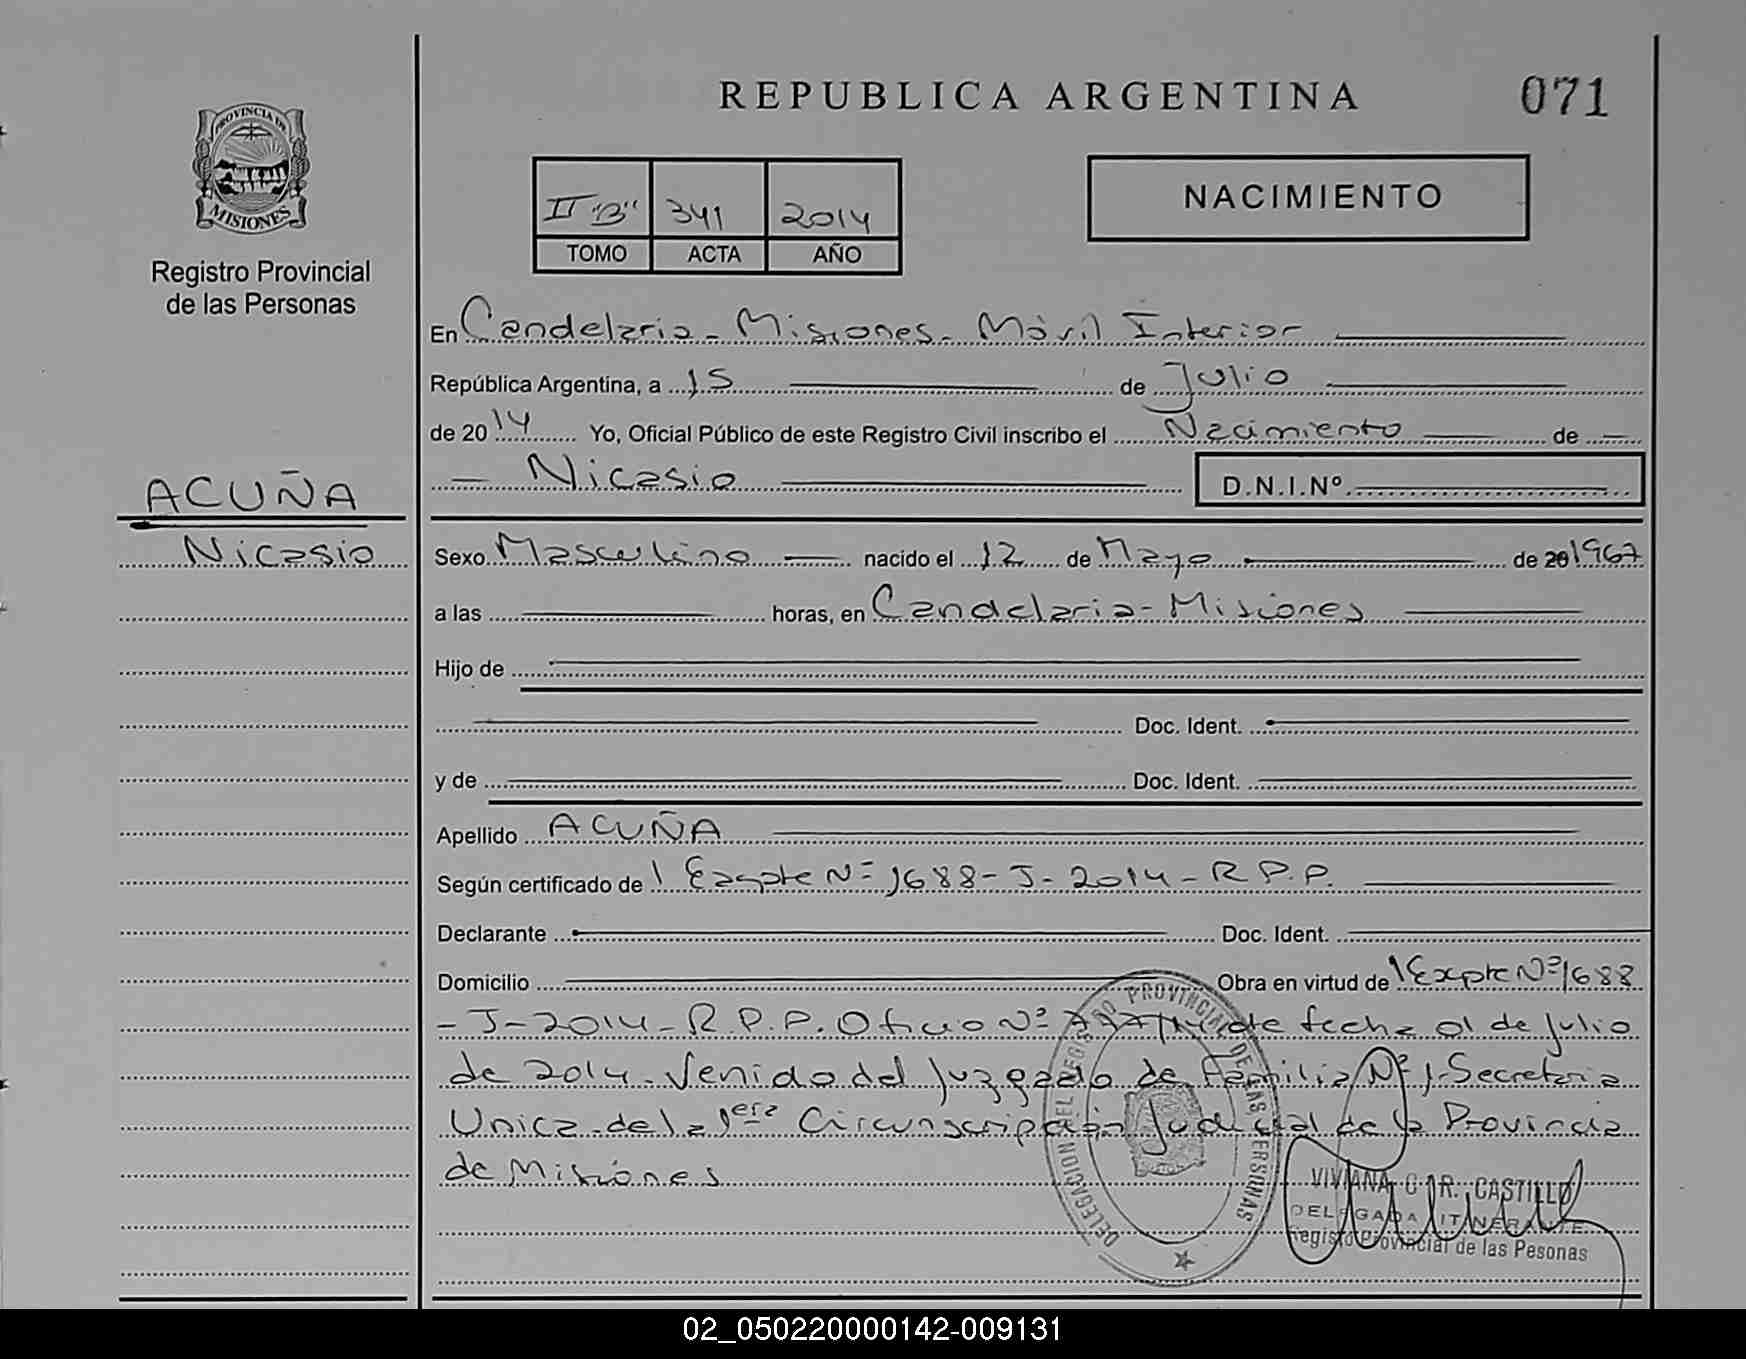 REPUBLICA ARGENTINA
071
PROVINCIA DE
MISIONES
Registro Provincial
de las Personas
II "B" 341 2014
TOMO ACTA AÑO
NACIMIENTO
En Candelaria - Misiones - Móvil Interior
República Argentina, a 15 de Julio
de 2014 Yo, Oficial Público de este Registro Civil inscribo el Nacimiento de
Nicasio
D.N.I.Nº
ACUÑA
Nicasio
Sexo Masculino nacido el 12 de Mayo de 20 1967
a las horas, en Candelaria - Misiones
Hijo de
Doc. Ident.
y de Doc. Ident.
Apellido ACUÑA
Según certificado de 1 Expte Nº 1688 - J - 2014 - R.P.P.
Declarante Doc. Ident.
Domicilio Obra en virtud de 1 Expte Nº 1688
- J - 2014 - R.P.P. Oficio Nº de fecha 01 de Julio
de 2014 - Venido del Juzgado de Familia Nº 1 - Secretaria
Unica - de la 1era Circunscripción Judicial de la Provincia
de Misiones
DELEGACION DEL REGISTRO PROVINCIAL DE LAS PERSONAS
VIVIANA R. CASTILLO
DELEGADA ITINERANTE
Registro Provincial de las Pesonas
02_050220000142-009131